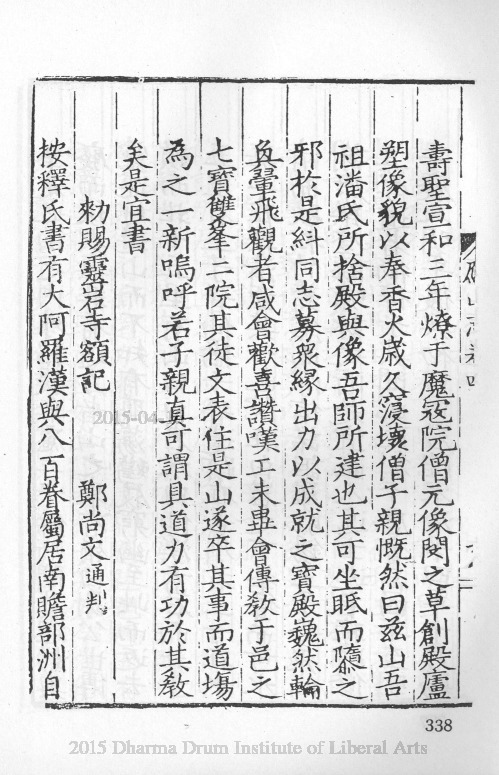 壽聖宣和三年燎于魔寇院僧元像閔之草創殿廬
塑像貌以奉香火歲久寖壞僧子親慨然曰兹山吾
祖潘氏所捨殿與像吾師所建也其可坐眂而隳之
邪於是糾同志募衆緣出力以成就之寶殿巍然輪
奐翬飛觀者咸會歡喜讚嘆工未畢會傳敎于邑之
七寶雙峯二院其徒文表住是山遂卒其事而道塲
為之一新嗚呼若子親真可謂具道力有功於其敎
矣是宜書
勑賜靈岩寺額記 鄭尚文通判
按釋氏書有大阿羅漢與八百眷屬居南贍部洲自
338
2015-04-
2015 Dharma Drum Institute of Liberal Arts